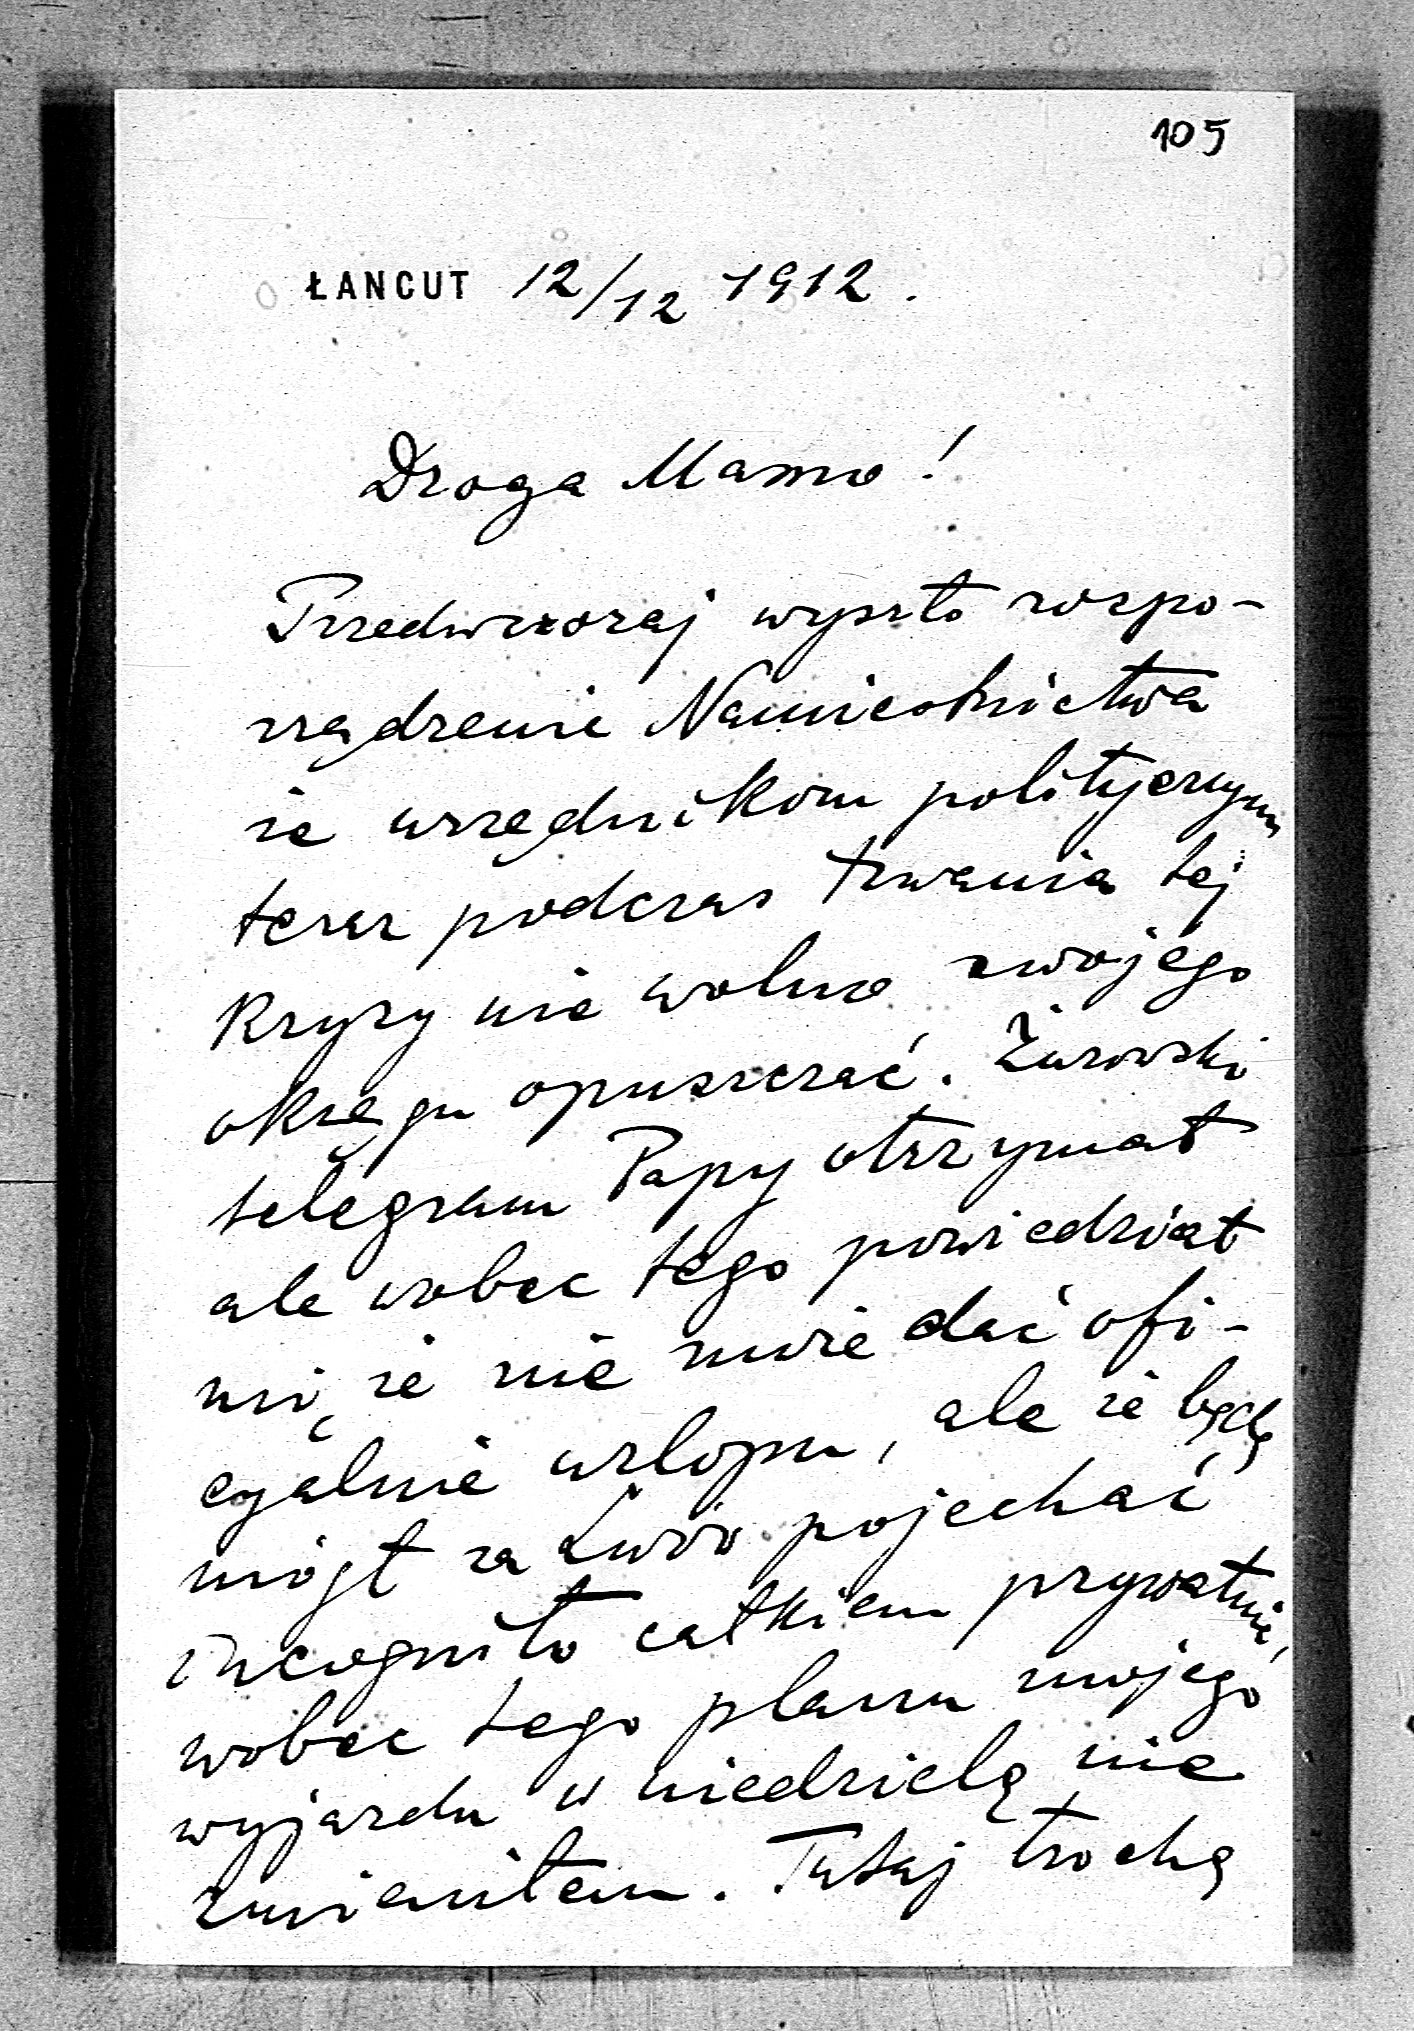 105
ŁANCUT 12/12 1912.
Droga Mamo!
Przedwczoraj wyszło rozpo-
rządzenie Namiestnictwa
że urzędnikom politycznym
teraz podczas trwania tej
kryzy nie wolno swojego
okręgu opuszczać. Żurowski
telegram Papy otrzymał
ale wobec tego powiedział
mi, że nie może dać ofi-
cyalnie urlopu, ale że będę
mógł za Lwów pojechać
incognito całkiem prywatnie,
wobec tego planu mojego
wyjazdu w niedzielę nie
zmieniłem. Tutaj trochę